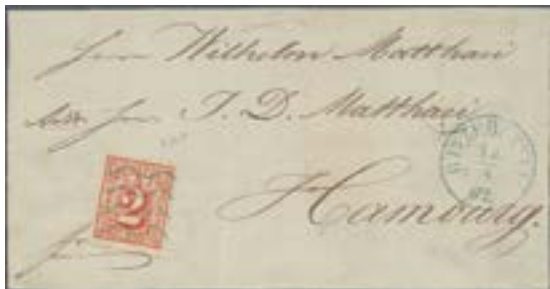 Herrn Wilhelm Matthaei
Herrn J. D. Matthaei
2
Hamburg.
frei